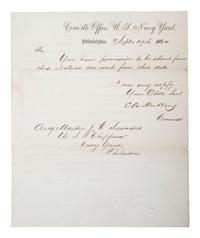 Com'dts Office, U. S. Navy Yard,
Philadelphia, Sept. 29th 1864
Sir
You have permission to be absent from
this Station one week from this date
I am very respectfy
Your Obdt Servt
C. K. Stribling
Commodt
Actg Master J. S.
U. S. S.
Navy Yard
Philada